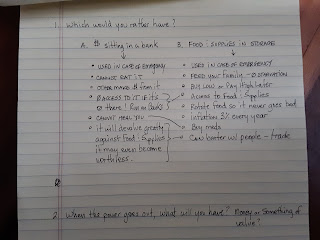 1. Which would you rather have?
A. $ sitting in a bank
B. FOOD & SUPPLIES IN STORAGE
• USED IN CASE OF EMERGENCY
• CANNOT EAT IT
• OTHER MAKES $ from it
• ACCESS TO IT IF it's
so there! (Run on Banks)
• CANNOT HEAL YOU
• it will devalue greatly
against Food & Supplies
it may even become
worthless.
• USED IN CASE OF EMERGENCY
• FEED your Family - STARVATION
• BUY LOW or PAY High Later
• Access to Food & Supplies
• Rotate food so it never goes bad
• Inflation 2% every year
• Buy meds
• Can barter w/ people - trade
2. When the power goes out, what will you have? Money or Something of
value?